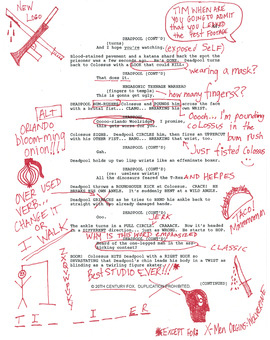 NEW
LOGO
TIM WHEN ARE
YOU GOING TO ADMIT
that YOU LEAKED
the test FOOTAGE
DEADPOOL (CONT'D)
(turns)
And I hope you're watching.
(exposed SELF)
Blood-stained pavement and a katana shard back the spot the
prisoner was a few seconds ago. He's GONE. Deadpool turns
back to Colossus with a LOOK that could KILL.
wearing a mask?
DEADPOOL (CONT'D)
That does it.
NEGASONIC TEENAGE WARHEAD
(fingers to temple)
This is gonna get ugly.
how many fingers??
DEADPOOL
Colossus and POUNDS him across the face
CLANG... BREAKING his own WRIST.
ALT
ORLANDO
Bloom-ming
onion!!!
DEADPOOL (CONT'D)
I promise,
this gets worse for you.
Oooch... I'm pounding
COLOSSUS in
the bum. Rush
Just fisted Colossus
COLOSSUS SIGHS. Deadpool CIRCLES him, then fires an UPPERCUT
with his OTHER FIST. BANG... BREAKING that wrist, too.
DEADPOOL (CONT'D)
Gah.
Deadpool holds up two limp wrists like an effeminate boxer.
DEADPOOL (CONT'D)
(re: useless wrists)
All the dinosaurs feared the T-Rex
AND HERPES
OVER USED
VERB.
CHANGE
OR I
WALK
Deadpool throws a ROUNDHOUSE KICK at Colossus. CRACK! HE
BREAKS HIS OWN ANKLE. It's suddenly BENT at a WILD ANGLE.
Deadpool GRIMACES as he tries to BEND his ankle back to
straight with his already damaged hands.
DEADPOOL (CONT'D)
Ooo.
JERK
TACO
The ankle turns in a FULL CIRCLE. CRAAACK. Now it's headed
in a DIFFERENT direction... just as WRONG. He starts to HOP.
WHY IS THIS WORD EMPHASIZED
DEADPOOL (CONT'D)
Heard of the one-legged man in the ass-
kicking contest?
CLASSIC
BOOM! Colossus HITS Deadpool with a RIGHT HOOK so
DEVASTATING that Deadpool's chin leads his body in a TWIST as
blinding as a twirling figure skater.
Best STUDIO EVER!!!*
© 20TH CENTURY FOX. DUPLICATION PROHIBITED.
(CONTINUED)
I I I ER
*EXCEPT FOR X-Men Origins: Wolverine